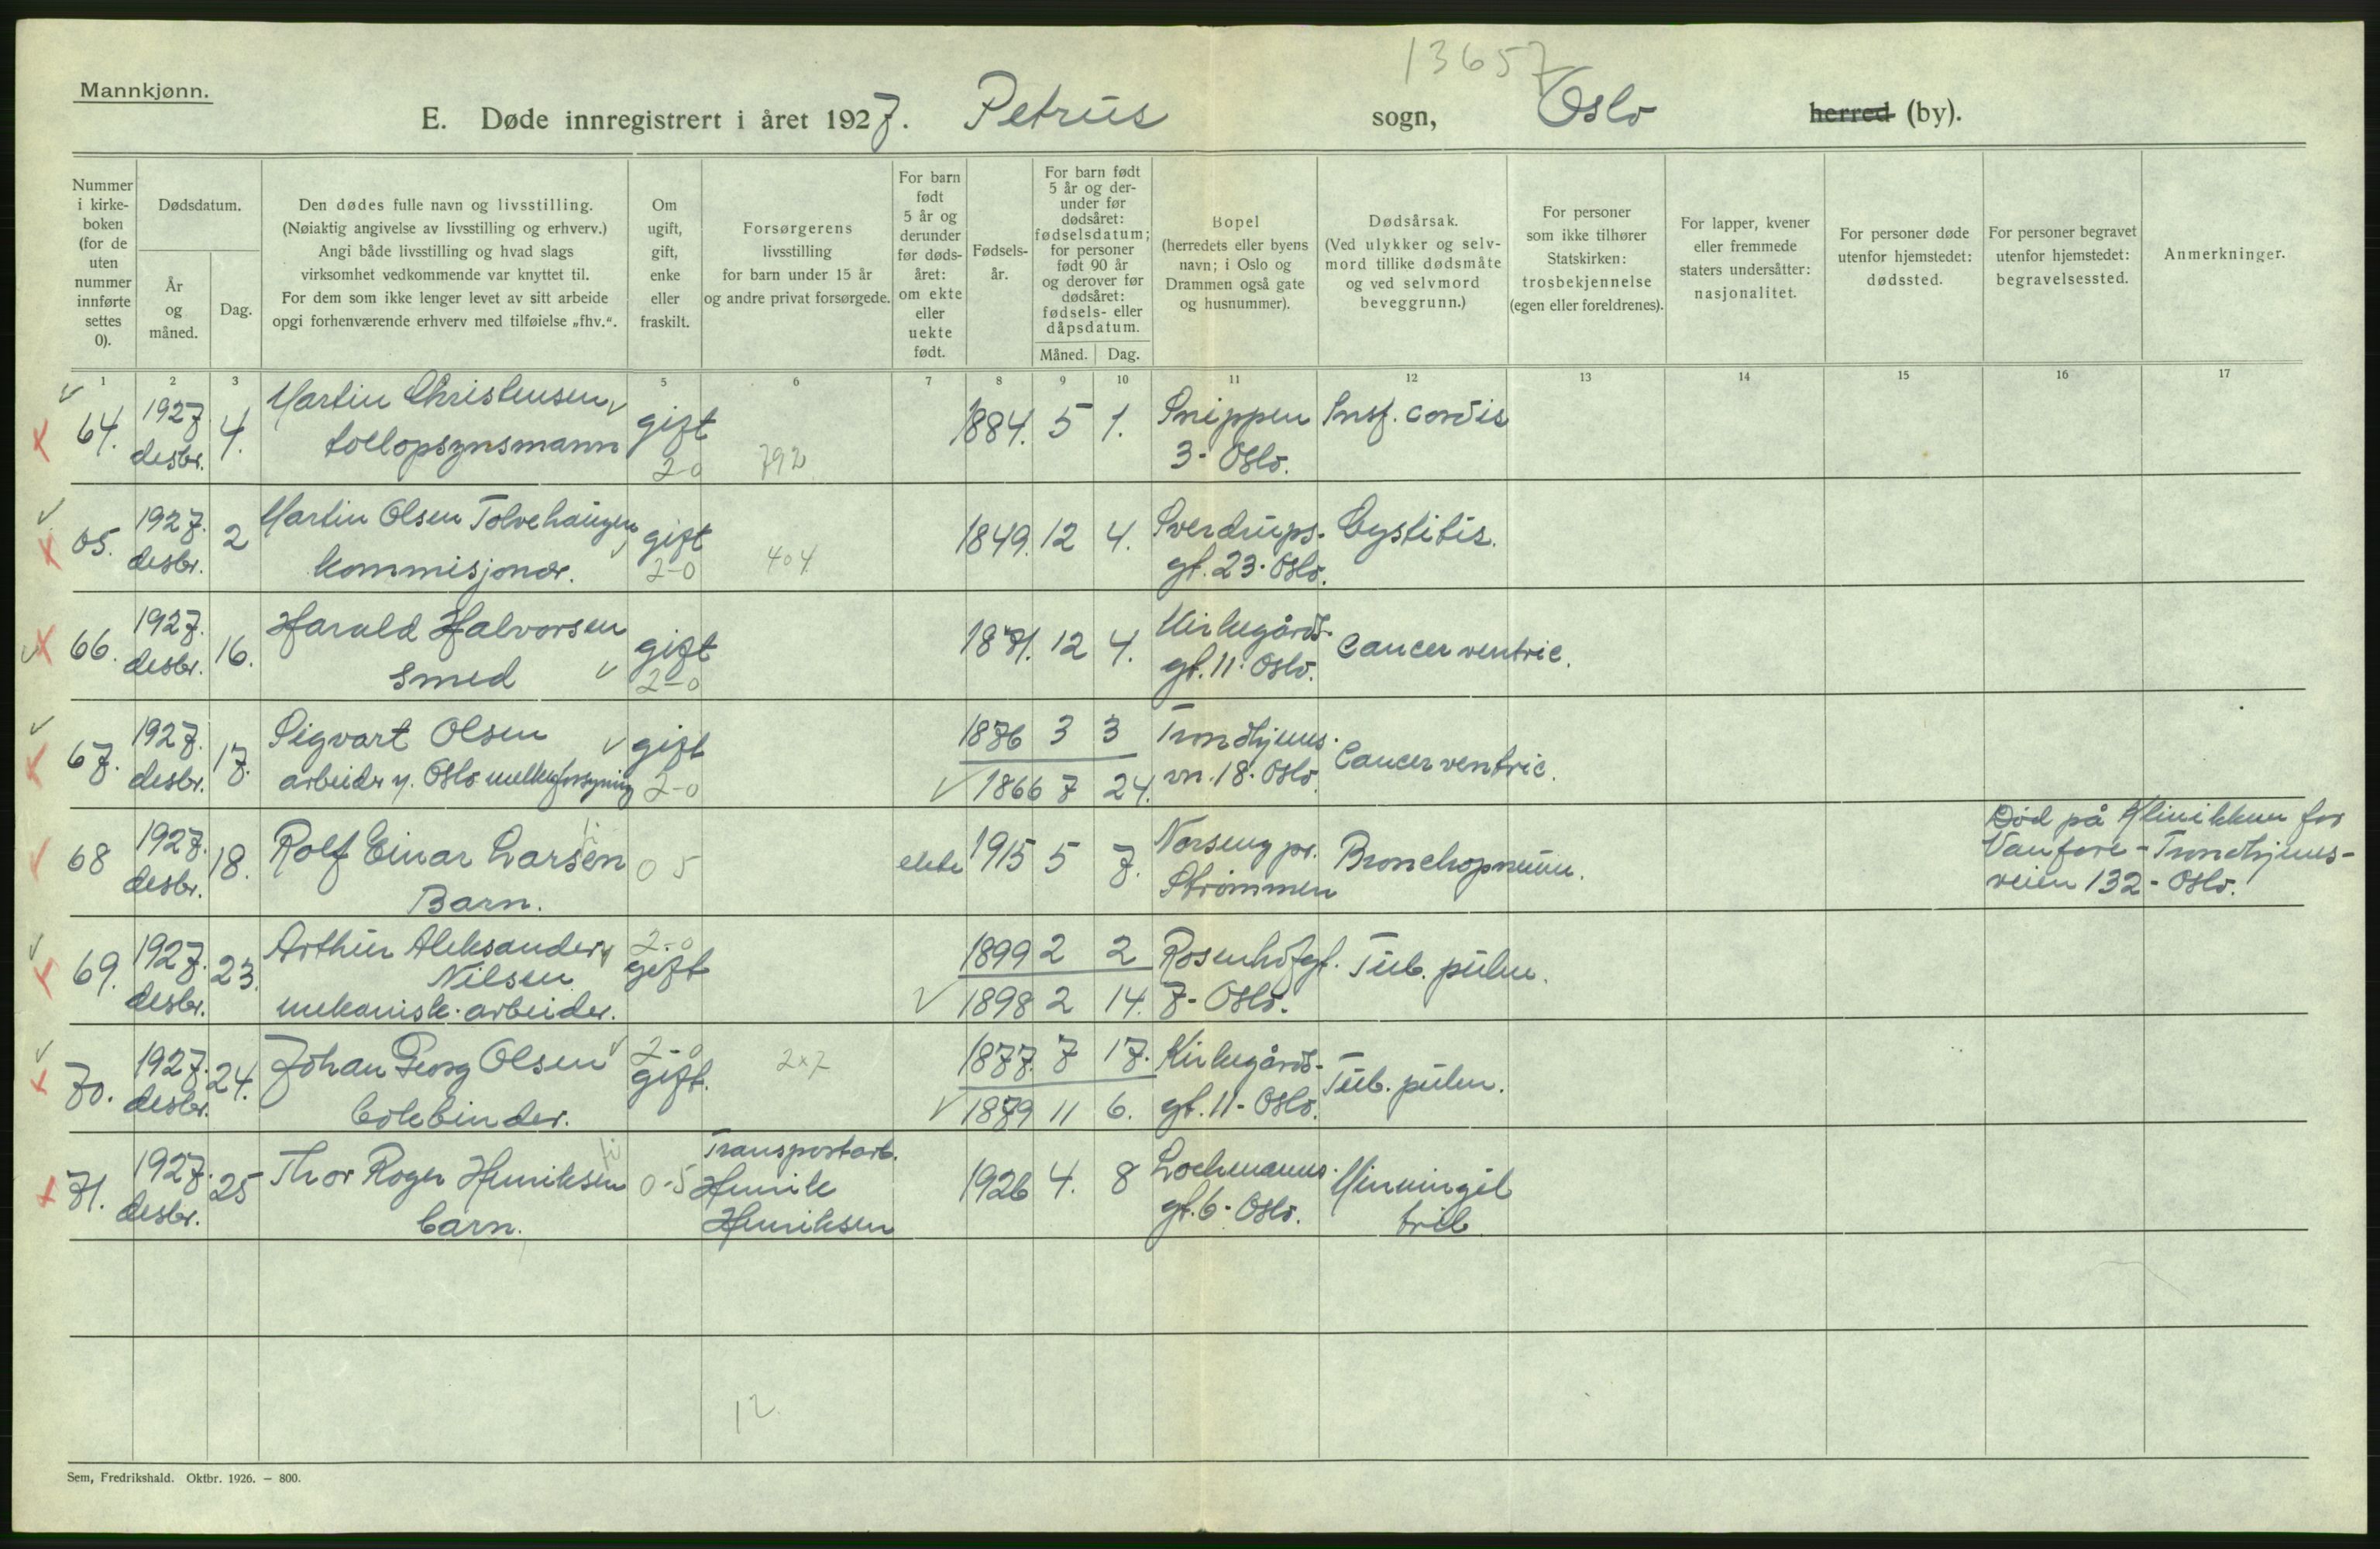 13657
Mannkjønn.
E. Døde innregistrert i året 1927. Petrus sogn, Oslo herred (by).
Nummer
i kirke-
boken
(for de
uten
nummer
innførte
settes
0).
Dødsdatum.
År
og
måned.
Dag.
Den dødes fulle navn og livsstilling.
(Nøiaktig angivelse av livsstilling og erhverv.)
Angi både livsstilling og hvad slags
virksomhet vedkommende var knyttet til.
For dem som ikke lenger levet av sitt arbeide
opgi forhenværende erhverv med tilføielse „fhv.“.
Om
ugift,
gift,
enke
eller
fraskilt.
Forsørgerens
livsstilling
for barn under 15 år
og andre privat forsørgede.
For barn
født
5 år og
derunder
før døds-
året:
om ekte
eller
uekte
født.
Fødsels-
år.
For barn født
5 år og der-
under før
dødsåret:
fødselsdatum;
for personer
født 90 år
og derover før
dødsåret:
fødsels- eller
dåpsdatum.
Måned. Dag.
Bopel
(herredets eller byens
navn; i Oslo og
Drammen også gate
og husnummer).
Dødsårsak.
(Ved ulykker og selv-
mord tillike dødsmåte
og ved selvmord
beveggrunn.)
For personer
som ikke tilhører
Statskirken:
trosbekjennelse
(egen eller foreldrenes).
For lapper, kvener
eller fremmede
staters undersåtter:
nasjonalitet.
For personer døde
utenfor hjemstedet:
dødssted.
For personer begravet
utenfor hjemstedet:
begravelsessted.
Anmerkninger.
1 2 3 5 6 7 8 9 10 11 12 13 14 15 16 17
64. 1927 desbr. 4. Martin Christensen gift 1884. 5 1. Snippen Insf. cordis
tollopsynsmann 2-0 792 3 - Oslo.
65. 1927. desbr. 2 Martin Olsen Tolvehaugen gift 1849. 12 4. Sverdrups- Cystitis.
kommisjonær. 2-0 404 gt. 23 - Oslo.
66. 1927. desbr. 16. Harald Halvorsen gift 1871. 12 4. Kirkegårds- Cancer ventric.
smed 2-0 gt. 11 - Oslo.
67. 1927. desbr. 17. Sigvart Olsen gift 1876 3 3 Trondhjems- Cancer ventric.
arbeider v. Oslo melkeforsyning 2-0 1866 7 24. vn. 18 - Oslo
68 1927. desbr. 18. Rolf Einar Larsen 0 5 ekte 1915 5 7. Norseng pr. Bronchopneum.
Barn. Strømmen
Død på Klinikken for
Vanføre - Trondhjems-
veien 132 - Oslo.
69. 1927. desbr. 23. Arthur Aleksander 2-0 1899 2 2 Rosenhofgt. Tub. pulm.
Nilsen gift
mekanisk. arbeider. 1898 2 14. 7 - Oslo.
70. 1927. desbr. 24. Johan Georg Olsen 2-0 2x7 1877. 7 17. Kirkegårds- Tub. pulm.
gift.
bokbinder. 1879 11 6. gt. 11 - Oslo.
71. 1927. desbr. 25 Thor Roger Henriksen 0-5 Transportarb. 1926 4. 8 Lochmanns- Minningit
barn. Henrik gt. 6 - Oslo.
Henriksen
12
Sem, Fredrikshald. Oktbr. 1926. — 800.